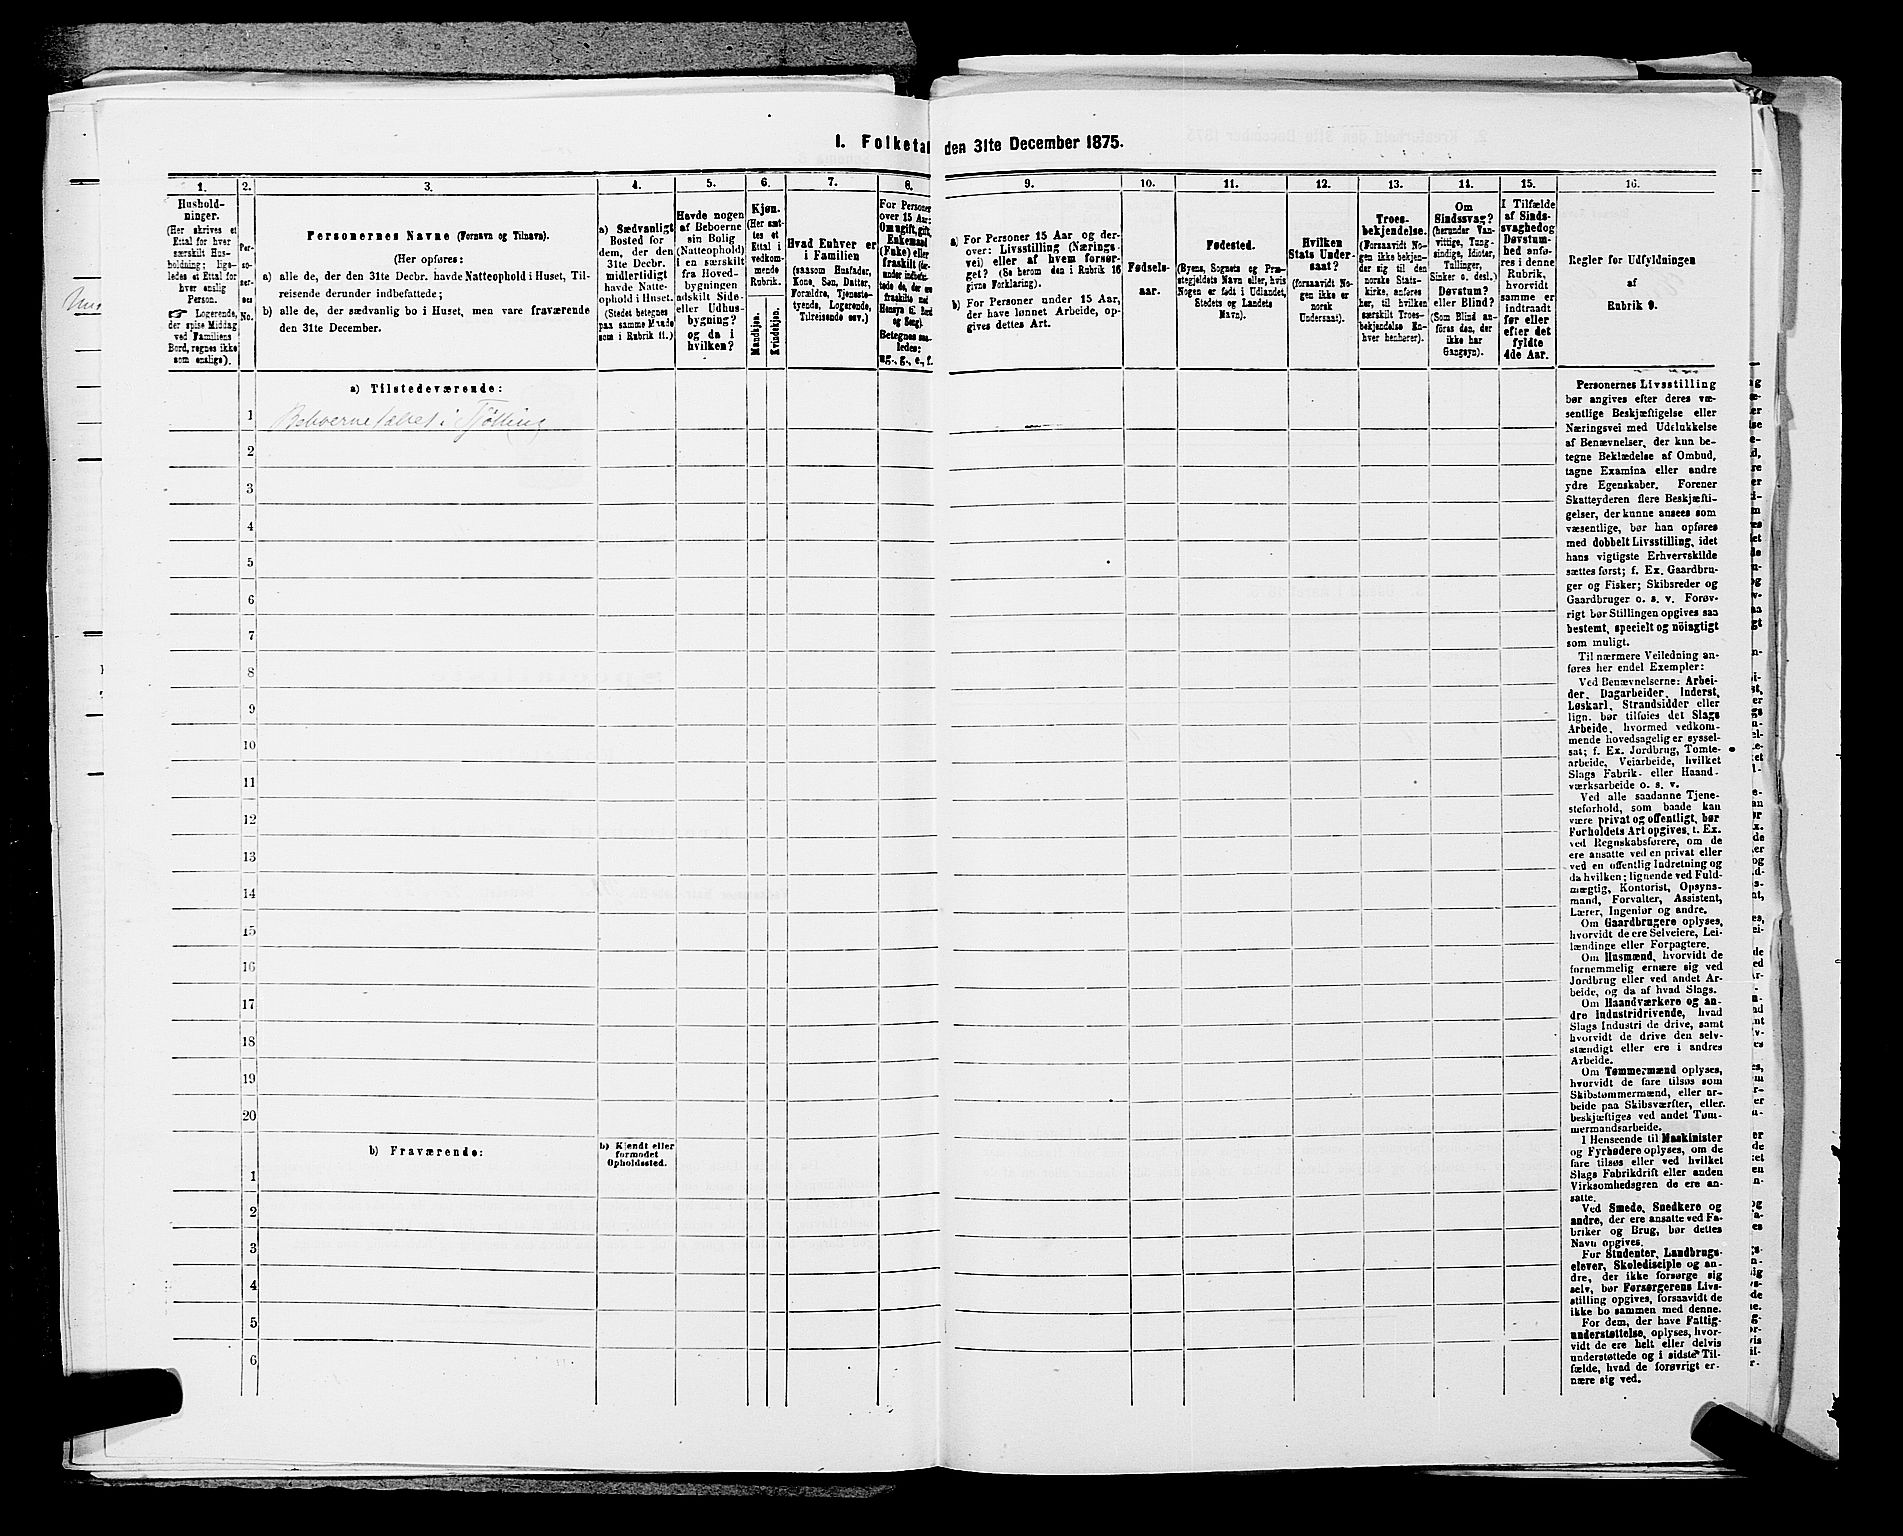 I. Folketal den 31te December 1875.
1.
2.
3.
4.
5.
6.
7.
8.
9.
10.
11.
12.
13.
14.
15.
16.
Hushold-
ninger.
(Her skrives et
Ettal for hver
særskilt Hus-
holdning; liga-
ledes et Ettal for
hver enslig
Person.
☞ Logerende,
der spise Middag
ved Familiens
Bord, regnes ikke
som enslige).
Per-
so-
ner-
nes
No.
Personernes Navne (Fornavn og Tilnavn).
(Her opføres:
a) alle de, der den 31te Decbr. havde Natteophold i Huset, Til-
reisende derunder indbefattede;
b) alle de, der sædvanlig bo i Huset, men vare fraværende
den 31te December.
a) Sædvanligt
Bosted for
dem, der den
31te Decbr.
midlertidigt
havde Natte-
ophold i Huset.
(Stedet betegnes
paa samme Maade
som i Rubrik 11.)
Havde nogen
af Beboerne
sin Bolig
(Natteophold)
i en særskilt
fra Hoved-
bygningen
adskilt Side-
eller Udhus-
bygning?
og da i
hvilken?
Kjøn.
(Her sæt-
tes et
Ettal i
vedkom-
mende
Rubrik.
Mandkjøn.
Kvindekjøn.
Hvad Enhver er
i Familien
(saasom Husfader,
Kone, Søn, Datter,
Forældre, Tjeneste-
tyende, Logerende,
Tilreisende osv.)
For Personer
over 15 Aar:
Om ugift, gift,
Enkemand
(Enke) eller
fraskilt (her-
under indbefat-
tede de, der ere
fraskilte med
Hensyn til Bord
og Seng).
Betegnes saa-
ledes:
ug., g., e., f.
a) For Personer 15 Aar og der-
over: Livsstilling (Nærings-
vei) eller af hvem forsør-
get? (Se herom den i Rubrik 16
givne Forklaring).
b) For Personer under 15 Aar,
der have lønnet Arbeide, op-
gives dettes Art.
Fødsels-
aar.
Fødested.
(Byens, Sognets og Præ-
stegjeldets Navn eller, hvis
Nogen er født i Udlandet,
Stedets og Landets
Navn).
Hvilken
Stats Under-
saat?
(forsaavidt No-
gen ikke er
norsk
Undersaat).
Troes-
bekjendelse.
(Forsaavidt No-
gen ikke bekjen-
der sig til den
norske Stats-
kirke, anføres
her, til hvilken
særskilt Troes-
bekjendelse En-
hver henhører).
Om
Sindssvag?
(herunder Van-
vittige, Tung-
sindige, Idioter,
Tullinger,
Sinker o. desl.)
Døvstum?
eller Blind?
(Som Blind an-
føres den, der
ikke har
Gangsyn).
I Tilfælde
af Sinds-
svaghed og
Døvstum-
hed anfø-
res i denne
Rubrik,
hvorvidt
samme er
indtraadt
før eller
efter det
fyldte
4de Aar.
Regler for Udfyldningen
af
Rubrik 9.
a) Tilstedeværende:
1 Beboerne talt i Tjølling
2
3
4
5
6
7
8
9
10
11
12
13
14
15
16
17
18
19
20
b) Fraværende:
b) Kjendt eller
formodet
Opholdssted.
1
2
3
4
5
6
Personernes Livsstilling
bør angives efter deres væ-
sentlige Beskjæftigelse eller
Næringsvei med Udelukkelse
af Benævnelser, der kun be-
tegne Beklædelse af Ombud,
tagne Examina eller andre
ydre Egenskaber. Forener
Skatteyderen flere Beskjæfti-
gelser, der kunne ansees som
væsentlige, bør han opføres
med dobbelt Livsstilling, idet
hans vigtigste Erhvervskilde
sættes først; f. Ex. Gaardbru-
ger og Fisker; Skibsreder og
Gaardbruger o. s. v. Forøv-
rigt bør Stillingen opgives saa
bestemt, specielt og nöiagtigt
som muligt.
Til nærmere Veiledning an-
føres her endel Exempler:
Ved Benævnelserne: Arbei-
der, Dagarbeider, Inderst,
Løskarl, Strandsidder eller
lign. bør tilføies det Slags
Arbeide, hvormed vedkom-
mende hovedsagelig er syssel-
sat; f. Ex. Jordbrug, Tomte-
arbeide, Veiarbeide, hvilket
Slags Fabrik- eller Haand-
værksarbeide o. s. v.
Ved alle saadanne Tjene-
steforhold, som baade kan
være privat og offentligt, bør
Forholdets Art opgives, t. Ex.
ved Regnskabsførere, om de
ere ansatte ved en privat eller
ved en offentlig Indretning og
da hvilken; lignende ved Fuld-
mægtig, Kontorist, Opsyns-
mand, Forvalter, Assistent,
Lærer, Ingeniør og andre.
Om Gaardbrugere oplyses,
hvorvidt de ere Selveiere, Lei-
lændinge eller Forpagtere.
Om Husmænd, hvorvidt de
fornemmelig ernære sig ved
Jordbrug eller ved andet Ar-
beide, og da af hvad Slags.
Om Haandværkere og an-
dre Industridrivende, hvad
Slags Industri de drive, samt
hvorvidt de drive den selv-
stændigt eller ere i andres
Arbeide.
Om Tømmermænd oplyses,
hvorvidt de fare tilsøs som
Skibstømmermænd, eller ar-
beide paa Skibsværfter, eller
beskjæftiges ved andet Tøm-
mermandsarbeide.
I Henseende til Maskinister
og Fyrbødere oplyses, om de
fare tilsøs eller ved hvilket
Slags Fabrikdrift eller anden
Virksomhedsgren de ere an-
satte.
Ved Smede, Snedkere og
andre, der ere ansatte ved Fa-
briker og Brug, bør dettes
Navn opgives.
For Studenter, Landbrugs-
elever, Skoledisciple og an-
dre, der ikke forsørge sig
selv, bør Forsørgerens Livs-
stilling opgives, forsaavidt de
ikke bo sammen med denne.
For dem, der have Fattig-
understøttelse, oplyses, hvor-
vidt de ere helt eller delvis
understøttede og i sidste Til-
fælde, hvad de forøvrigt er-
nære sig ved.